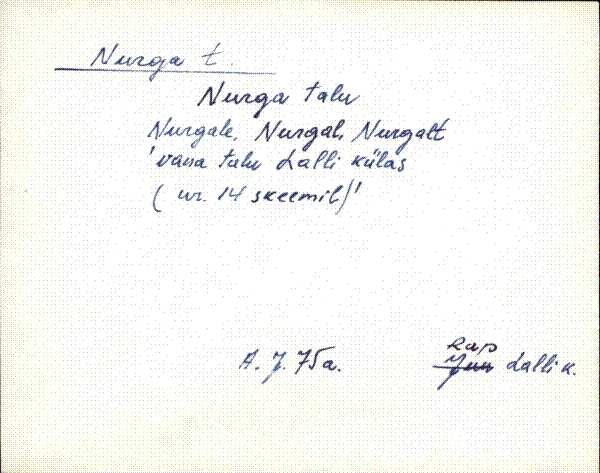 Nurga t.
Nurga talu
Nurgale, Nurgal, Nurgalt
'vana talu Lalli külas
( nr. 14 skeemil)'
Rap
A. J. 75a. Juu Lalli k.